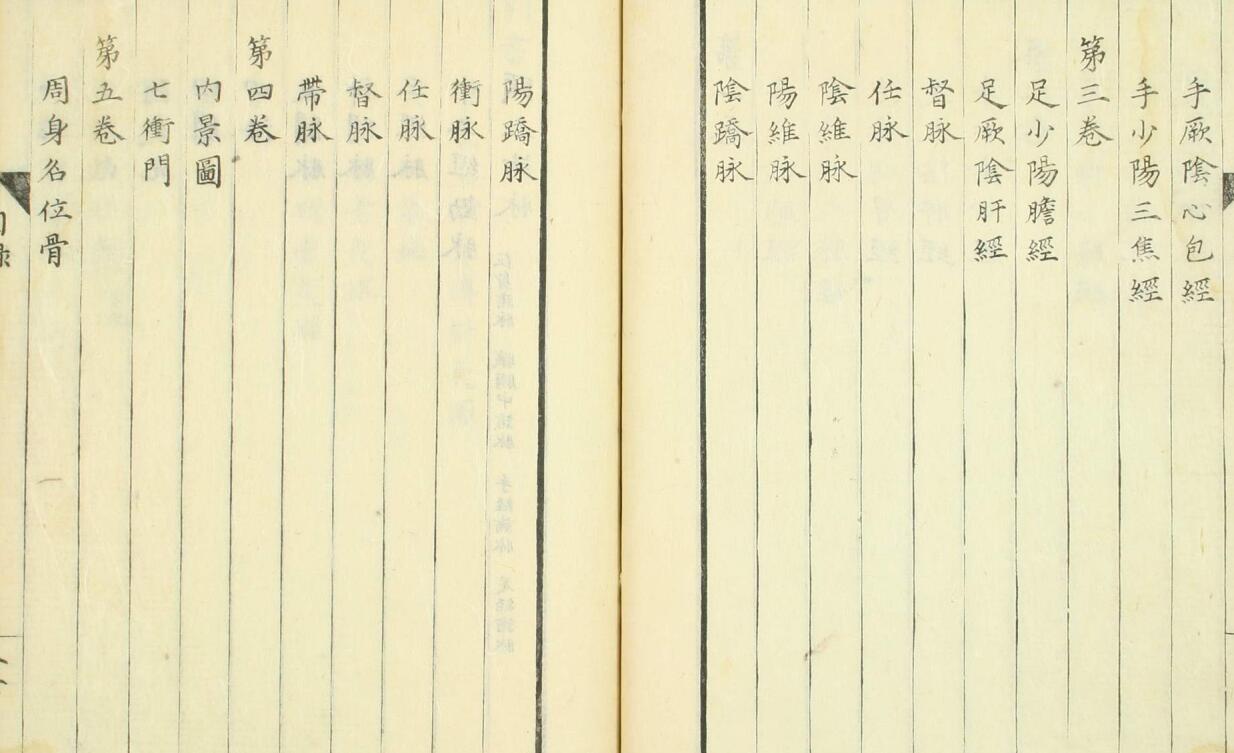 手厥陰心包經
手少陽三焦經
第三卷
足少陽膽經
足厥陰肝經
督脉
任脉
陰維脉
陽維脉
陰蹻脉
陽蹻脉
衝脉
任脉
督脉
帶脉
第四卷
内景圖
七衝門
第五卷
周身名位骨